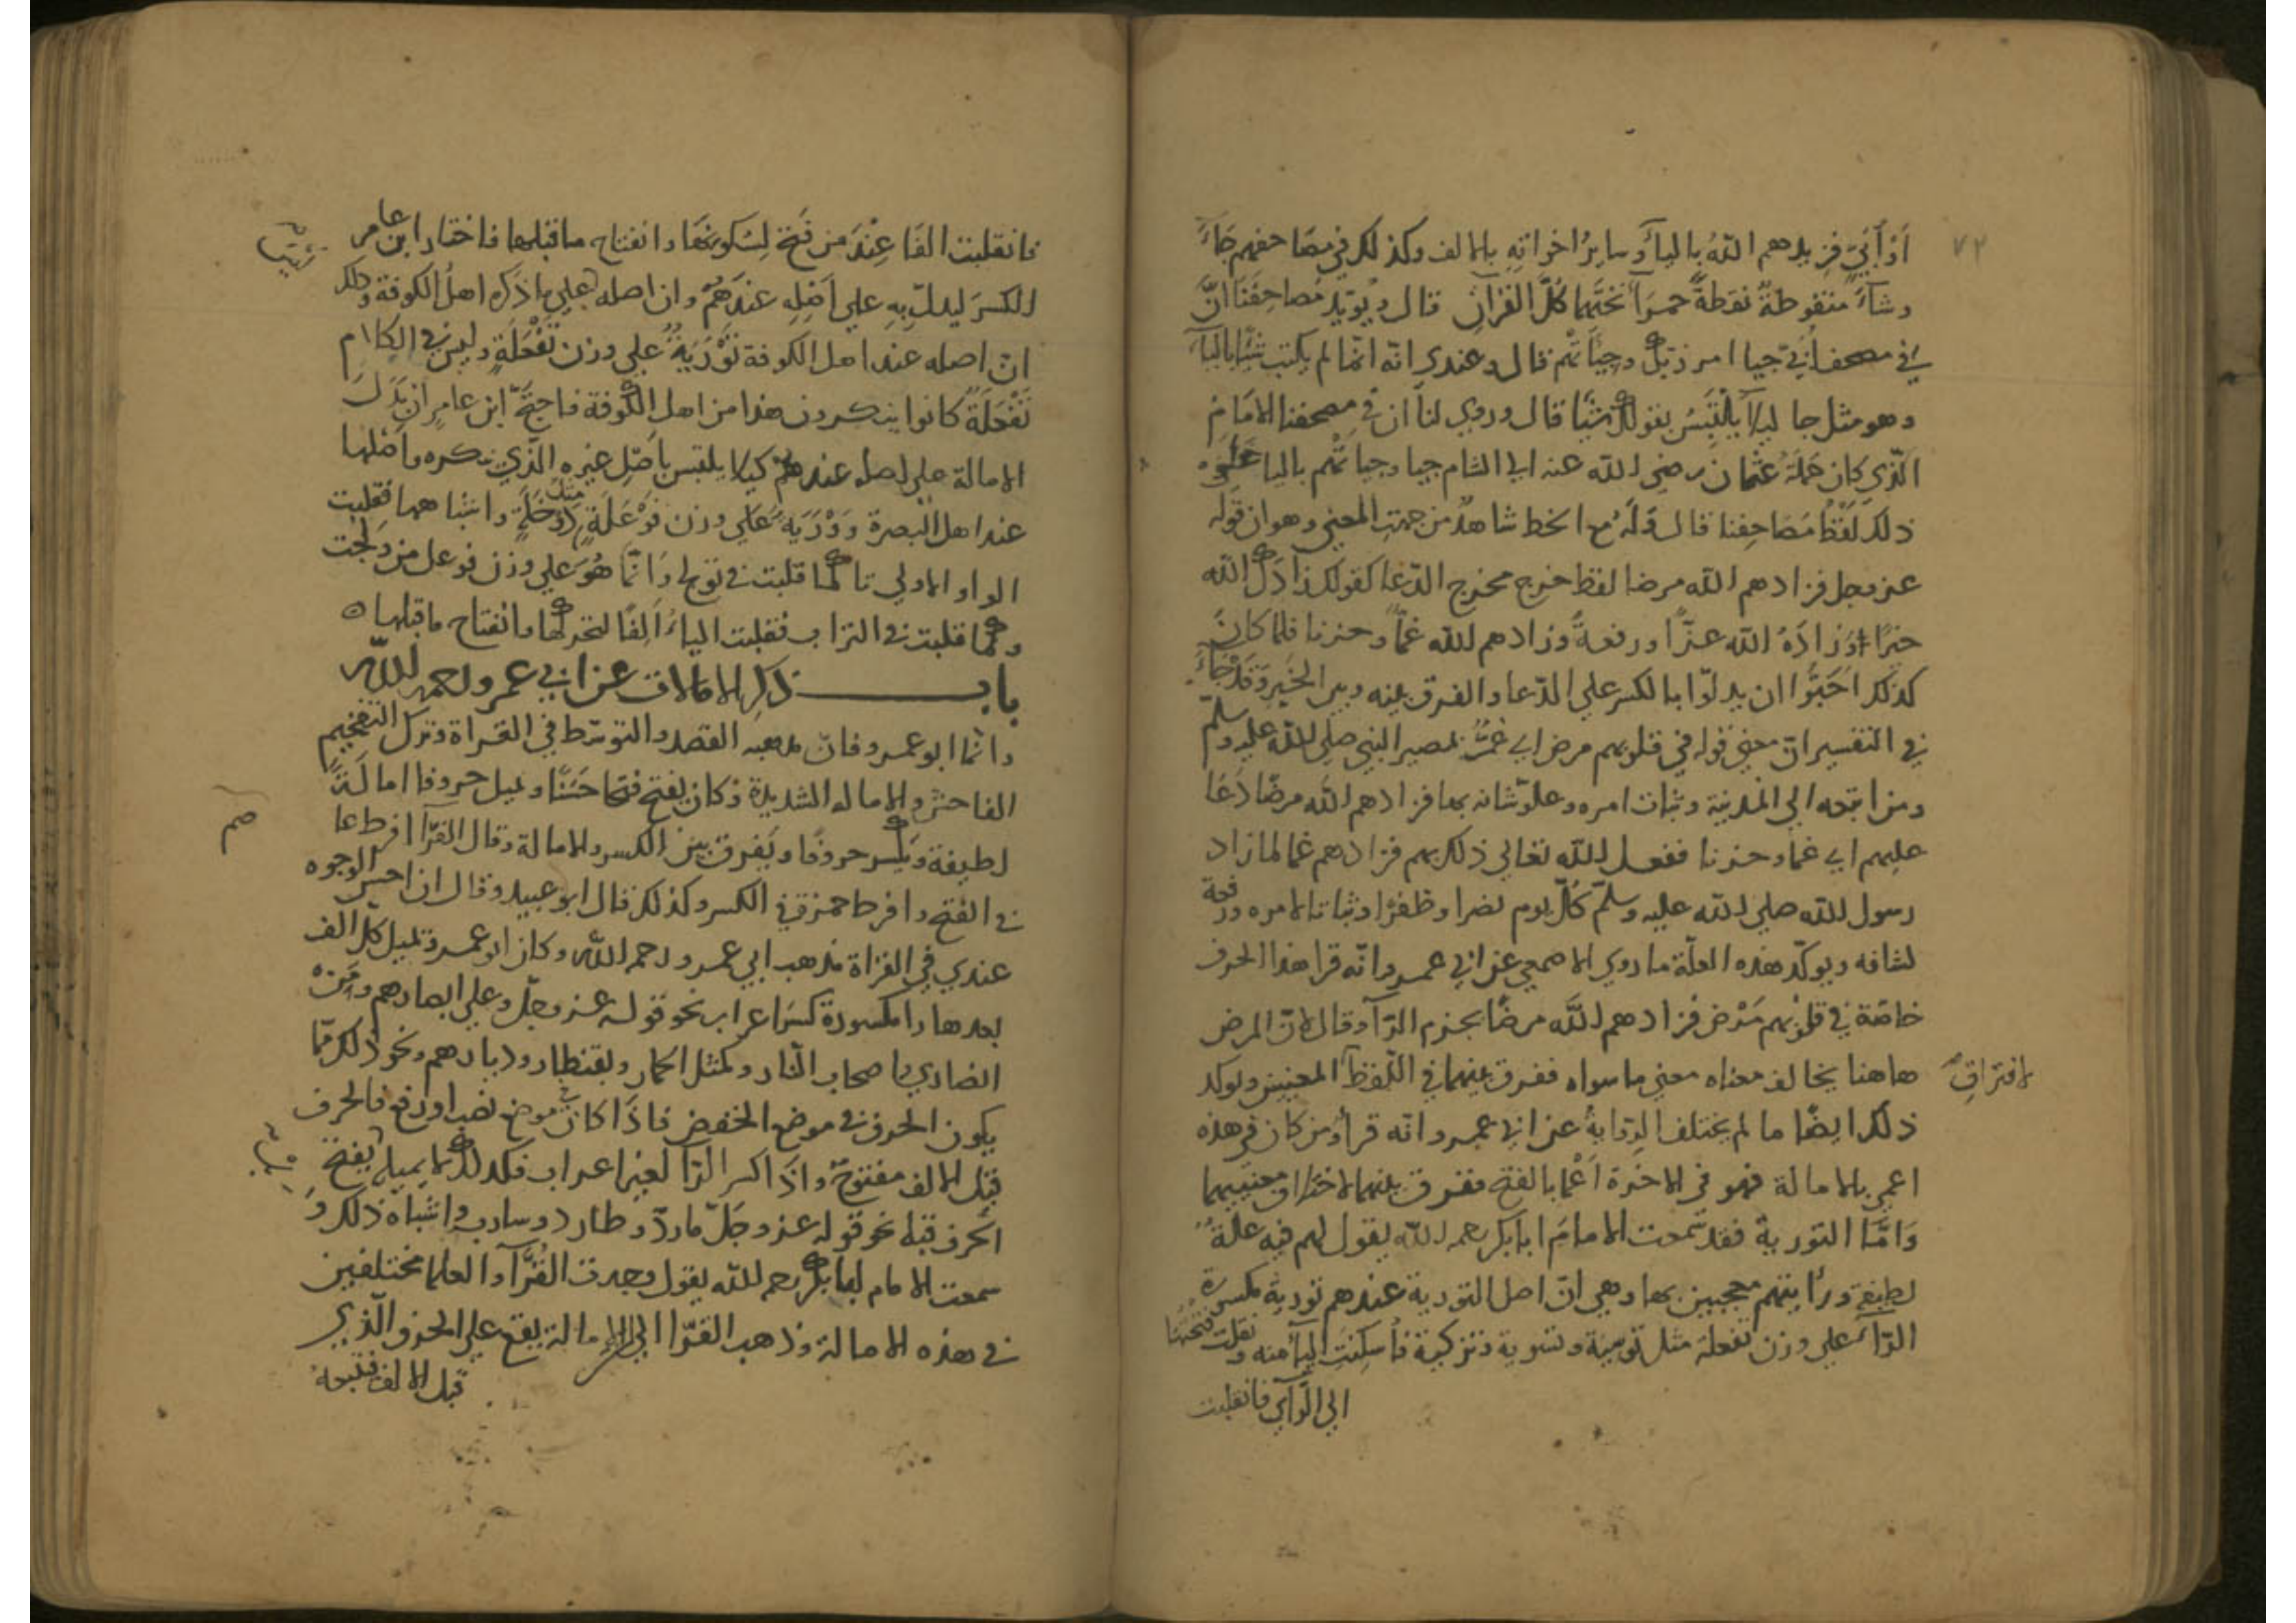 ٧٢
اَوْ اُبَيّ فزيدهم اللّهُ بالياۤء وسايرُ اخواته بالالف وكذلك في مصاحفهم جَاۤءَ
وشاۤءَ منقوطةً نقطةً حمرَآ تحتَهَا كُلّ القرانِ قال ويُويّد مصاحِفَنَا انّ
في مصحف اُبيّ جيا امر ربّك وجيَاتْهم قال وعندي انّه انّما لم يكتب شَيًا باليآ
وهو مثل جا ليلا يَلْتَبِسُ بقولك شيًا قال وروي لنا ان في مصحفنا الامَام
الّذي كان حَمَلَهُ عُثمان رضي اللّه عنه الي الشام جيا وجياتْهم باليا علي
ذلك لَفْظُ مَصَاحِفنا قال وَلَهُ مع الخط شاهدٌ من جهة المعني وهو ان قوله
عز وجل فزادهم اللّه مرضا لفظ خرج مخرج الدّعا كقولك زادكَ اللّه
خيرًا وَزادَهُ اللّه عزًّا ورفعةً وزادهم اللّه غمّاً وحزنا فلما كانَ
كذلك اَحَبُّوا ان يدلّوا بالكسر علي الدّعا والفرق بينه وبين الخَبرِ وَقَدْ جَاۤءَ
في التفسير انّ معني قوله في قلوبهم مرض اي غمٌّ لمصير النبي صلي اللّه عليه وسلم
ومن اتبعه الي المدينة وثبات امره وعلوّ شانه بها فزادهم اللّه مرضًا دَعَا
عليهم اي غما وحزنا ففعل اللّه تعالي ذلك بهم فزادهم غما لما زاد
رسول اللّه صلي اللّه عليه وسلّم كُلّ يوم نصرا وظفرًا وثباتا لامره ورفعة
لشانه ويوكّد هذه العلّة ما روي الاصمعي عن ابي عمرو انّه قرا هذا الحرف
خاصّة في قلوبهم مَرْض فزادهم اللّه مرضًا بجزم الرّآ وقال لانّ المرض
هاهنا يخالف معناه معني ما سواه ففرق بينهما في اللّفظ المعنيين ويوكد
لافتراقِ
ذلك ايضًا ما لم يختلف الرّوايةُ عن ابي عمرو انّه قرأ ومن كان في هذه
اعمي بالامالة فهو في الاخرة اَعْمَا بالفتح ففرق بينهما لاختلاف معنييهما
وَامَّا التورية فقد سَمعت الامامَ ابا بكر رحمه اللّه يقول لهم فيه علةٌ
لطيفة ورأيتهم معجبين بها وهي انّ اصل التورية عندهم تورِية مكسورة
الرّآ علي وزن تفعلة مثل توصية وتسوية وتزكية فاُسكِنَتِ اليآ منه ونقلت فتحتها
الي الرّآي فانقلبت
فانقلبت الفَا عِنْدَ من فتح لِسُكونِهَا وانفتاح ما قبلها فاختار ابن عامر
الكسرَ ليدلّ بِهِ علي اَصْلِهِ عندَهُمْ وان اصله علي ما ذَكره اهلُ الكوفة وذلك
انّ اصله عند اهل الكوفة تَوْرَيَةٌ علي وزن تَفْعَلَةٍ وليس في الكلام
تَفْعَلَةٌ كانوا ينكرون هذا من اهل الكوفة فاحبَّ ابن عامر ان يَدُلَّ
الامالة علي اصله عندهم كيلا يلتبس باَصْلِ غيره الّذي نكره واَصْلها
عند اهل البصرة وَوْرَيَة علي وزن فَوْعَلَةٍ مثل دَوْخَلَةٍ واشباهها فقلبت
الواو الاولي تا كما قلبت في تولج وَانّما هُوَ علي وزن فوعل من وَلَجت
وكما قلبت في التراب فقلبت الياۤءُ اَلِفًا لتحركها وانفتاح ما قبلها ه
باب ذكر الامالات عن ابي عمرو رحمه اللّه
وامّا ابو عمرو فانّ مذهبه القصد والتوسّط في القراة وترك التفخيم
الفاحش والامالة الشديدة وكان يفتح فتحا حَسَنًا ويميل حروفا امالَةً
لطيفة ويكسر حروفًا ويَفرق بين الكسر والامالة وقال الفرّآ افرط عا
صم
في الفتح وافرط حمزة في الكسر وكذلك قال ابو عبيد وقال ان احسن الوجوه
عندي في القراة مذهب ابي عمرو رحمه اللّه وكان ابو عمرو يميل كلّ الف
بعدها را مكسورة كسرَ اعراب نحو قوله عز وجلّ وعلي ابصارهم ومِن
انصاري واصحاب النّار وكمثل الحمار وبقنطار وديارهم ونحو ذلك ممّا
يكون الحرف في موضع الخفض فاذَا كان في موضع نصب او رفع فالحرف
قبل الالف مفتوحٌ واذَا كسر الرّا لغير اعراب فكذلك لا يميله يفتح
الحرف قبله نحو قوله عز وجَلّ مارد وطارد وسارب واشباه ذلك وَ
سمعت الامام ابا بكر رحمه اللّه يقول وجدت القُرّآ والعلما مختلفين
في هذه الامالة وذهب القرّا الي الامالة يقع علي الحرف الّذي
قبل الالف فتتبعهُ